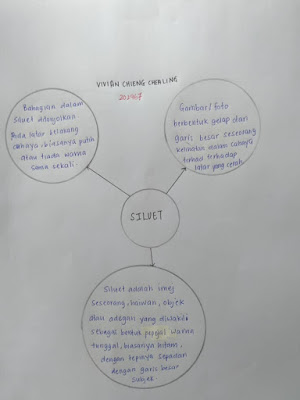 VIVIAN CHIENG CHEALING
Bahagian dalam
siluet ditonjolkan
pada latar belakang
cahaya, biasanya putih
atau tiada warna
sama sekali.
Gambar/Foto
berbentuk gelap dan
garis besar seseorang
kelihatan dalam cahaya
terhad terhadap
latar yang cerah.
SILUET
Siluet adalah imej
seseorang, haiwan, objek
atau adegan yang diwakili
sebagai bentuk pepejal warna
tunggal, biasanya hitam,
dengan tepinya sepadan
dengan garis besar
subjek.